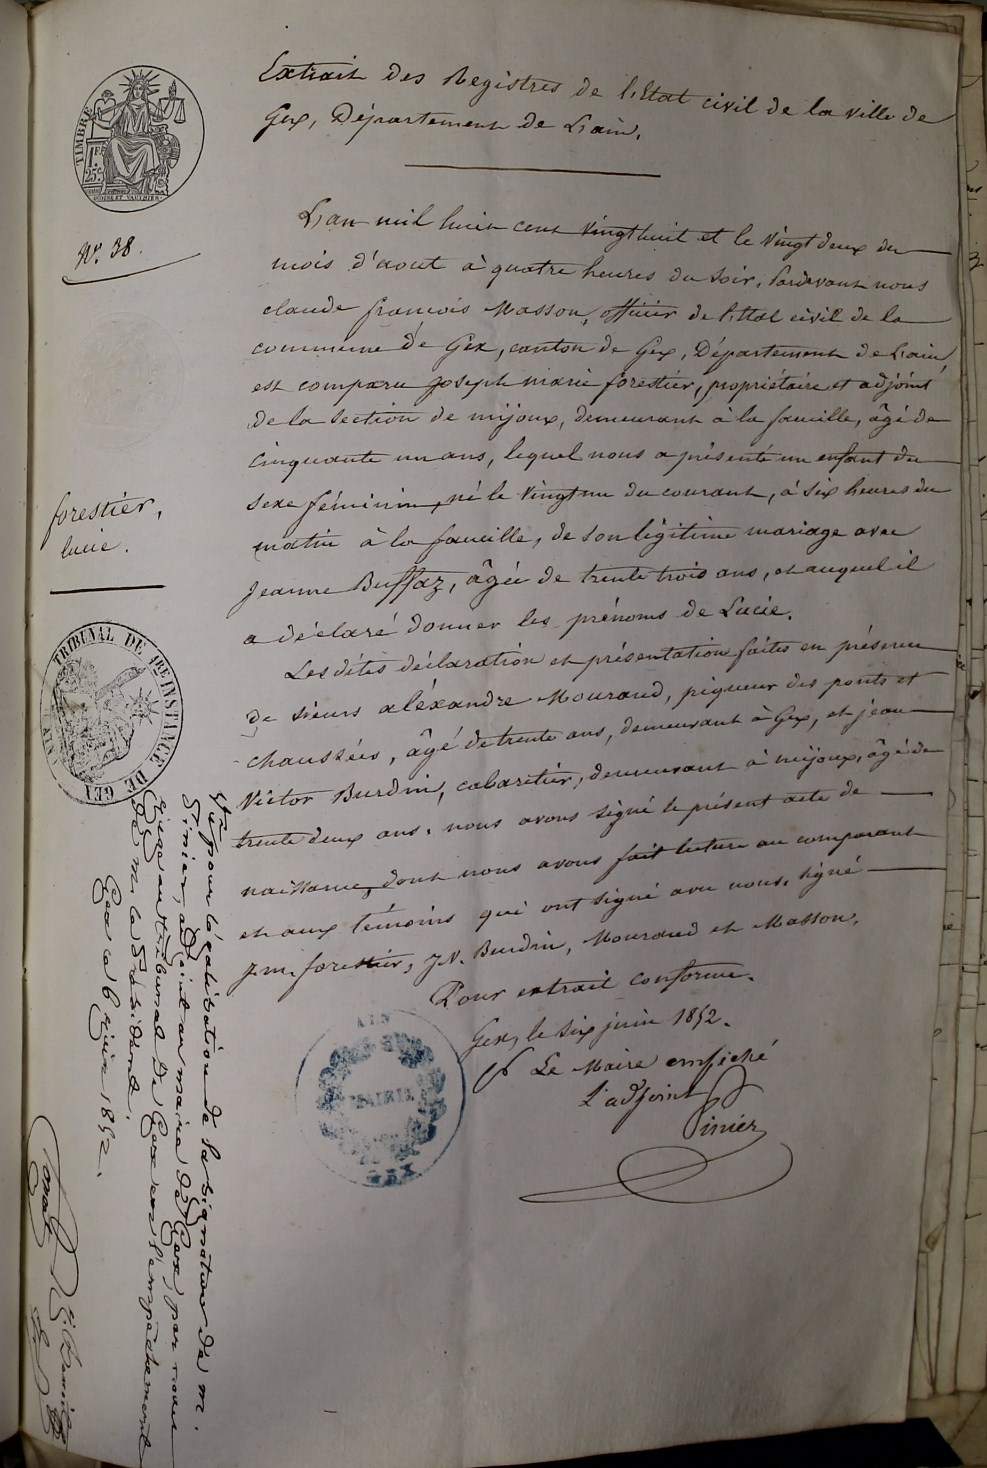 Extrait des Registres de l'Etat civil de la ville de
Gex, Département de L'ain.
TIMBRE
1 FR
25 c.
N°. 38.
L'an mil huit cent vingthuit et le vingt deux du
mois d'aout à quatre heures du soir, Pardevant nous
claude françois Masson, officier de l'Etat civil de la
commune de Gex, canton de Gex, Département de L'ain,
est comparu joseph marie forestiér, propriétaire et adjoint
de la section de mijoux, demeurant à la faucille, âgé de
cinquante un ans, lequel nous a présenté un enfant du
sexe féminin, né le vingt un du courant, à six heures du
matin à la faucille, de son légitime mariage avec
Jeanne Buffaz, âgée de trente trois ans, et auquel il
a déclaré donner les prénoms de Lucie.
forestiér,
lucie.
Les dites déclaration et présentation faites en présence
de sieurs aléxandre Mouraud, piqueur des ponts et
chaussées, âgé de trente ans, demeurant à Gex, et jean
Victor Burdin, cabaretiér, demeurant à mijoux, âgé de
trente deux ans. nous avons signé le présent acte de
naissance, dont nous avons fait lecture au comparant
et aux témoins qui ont signé avec nous. signé
J.m. forestiér, J.V. Burdin, Mouraud et Masson.
Pour extrait conforme.
Gex, le six juin 1852.
Le Maire empêché
L'adjoint
Piniér
TRIBUNAL DE 1RE INSTANCE DE GEX
AIN
AIN
MAIRIE
GEX
Vu pour légalisation de la signature de M.
Piniér, adjoint au maire de Gex, par nous
Juge au tribunal de Gex vu l'empêchement
de M. le Président.
Gex ce 6 juin 1852.